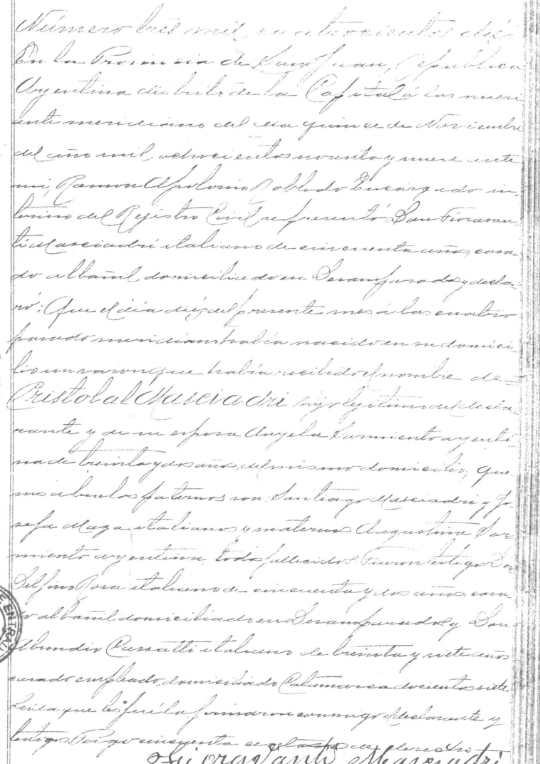 Número tres mil cuatrocientos diez
En la Provincia de San Juan, República
Argentina distrito de la Capital á las nueve
ante meridiano del dia quince de Noviembre
del año mil ochocientos noventa y nueve ante
mi, Ramon Apolonio Robledo Encargado in-
terino del Registro Civil se presentó Don Fioravan-
ti Masciadri italiano de cincuenta años, casa-
do albañil domiciliado en Desamparados y decla-
ró: Que el dia diez del presente mes á las cuatro
pasado meridiano habia nacido en su domici-
lio un varon que habia recibido el nombre de
Cristobal Masciadri hijo legitimo del decla-
rante y de su esposa Angela Sarmiento argenti-
na de treinta y dos años, del mismo domicilio, Que
sus abuelos paternos son Santiago Masciadri y Jo-
sefa Maga italianos y maternos Augustina Sar-
miento argentina todos fallecidos. Fueron testigos Don
Delfin Rosa italiano de cincuenta y dos años casa-
do albañil domiciliado en Desamparados y Don
Abundio italiano de treinta y siete años
casado empleado domiciliado Catamarca docientos siete
Leida que les fué la firmaron conmigo el declarante y
testigos Pagó cincuenta centavos de derecho
Fioravanti Masciadri
ENTRAL